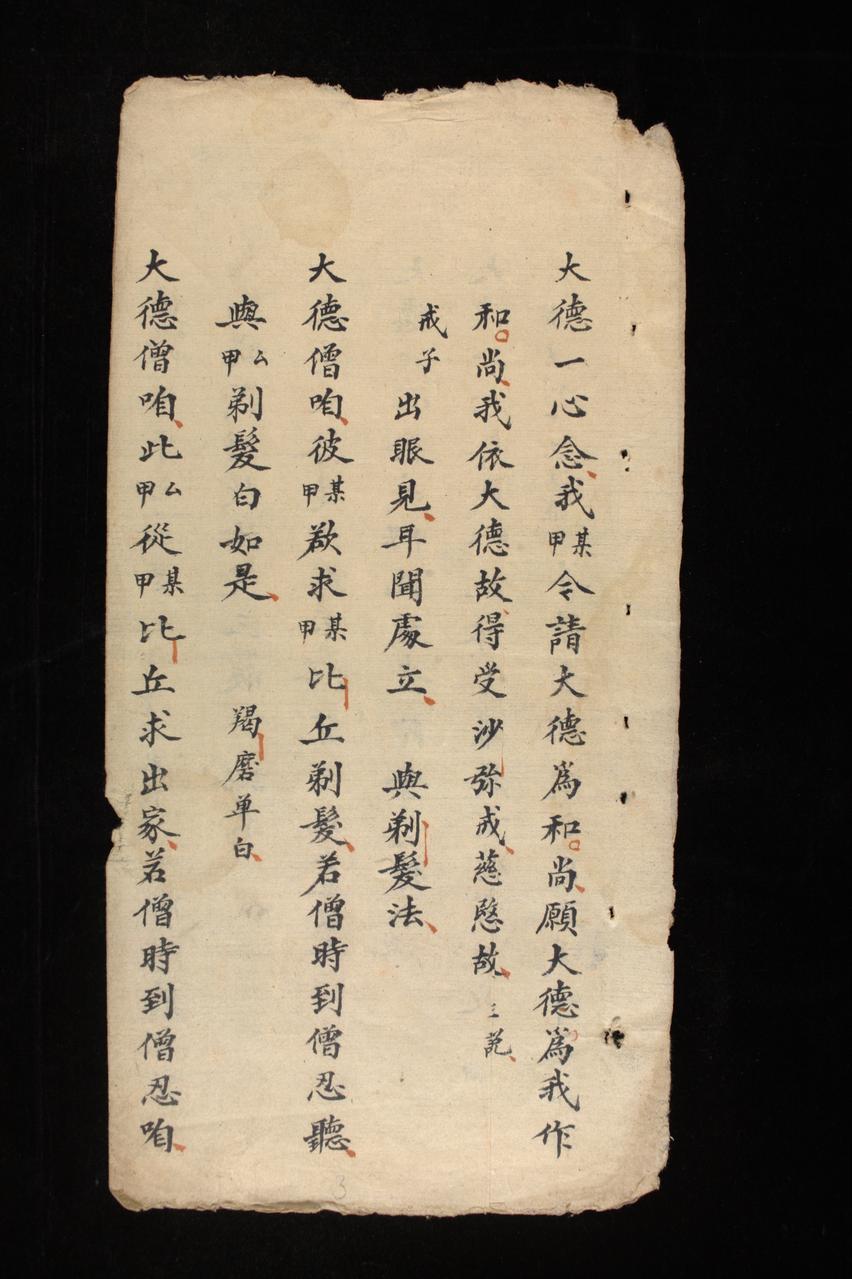 大德一心念我某甲令請大德爲和尚願大德爲我作
和尚我依大德故得受沙弥戒慈愍故三説
戒子出眼見耳聞處立 與剃髮法
大德僧咱彼某甲欲求某甲比丘剃髮若僧時到僧忍聽
與厶甲剃髮白如是 羯磨单白
大德僧咱此厶甲從某甲比丘求出家若僧時到僧忍咱
3